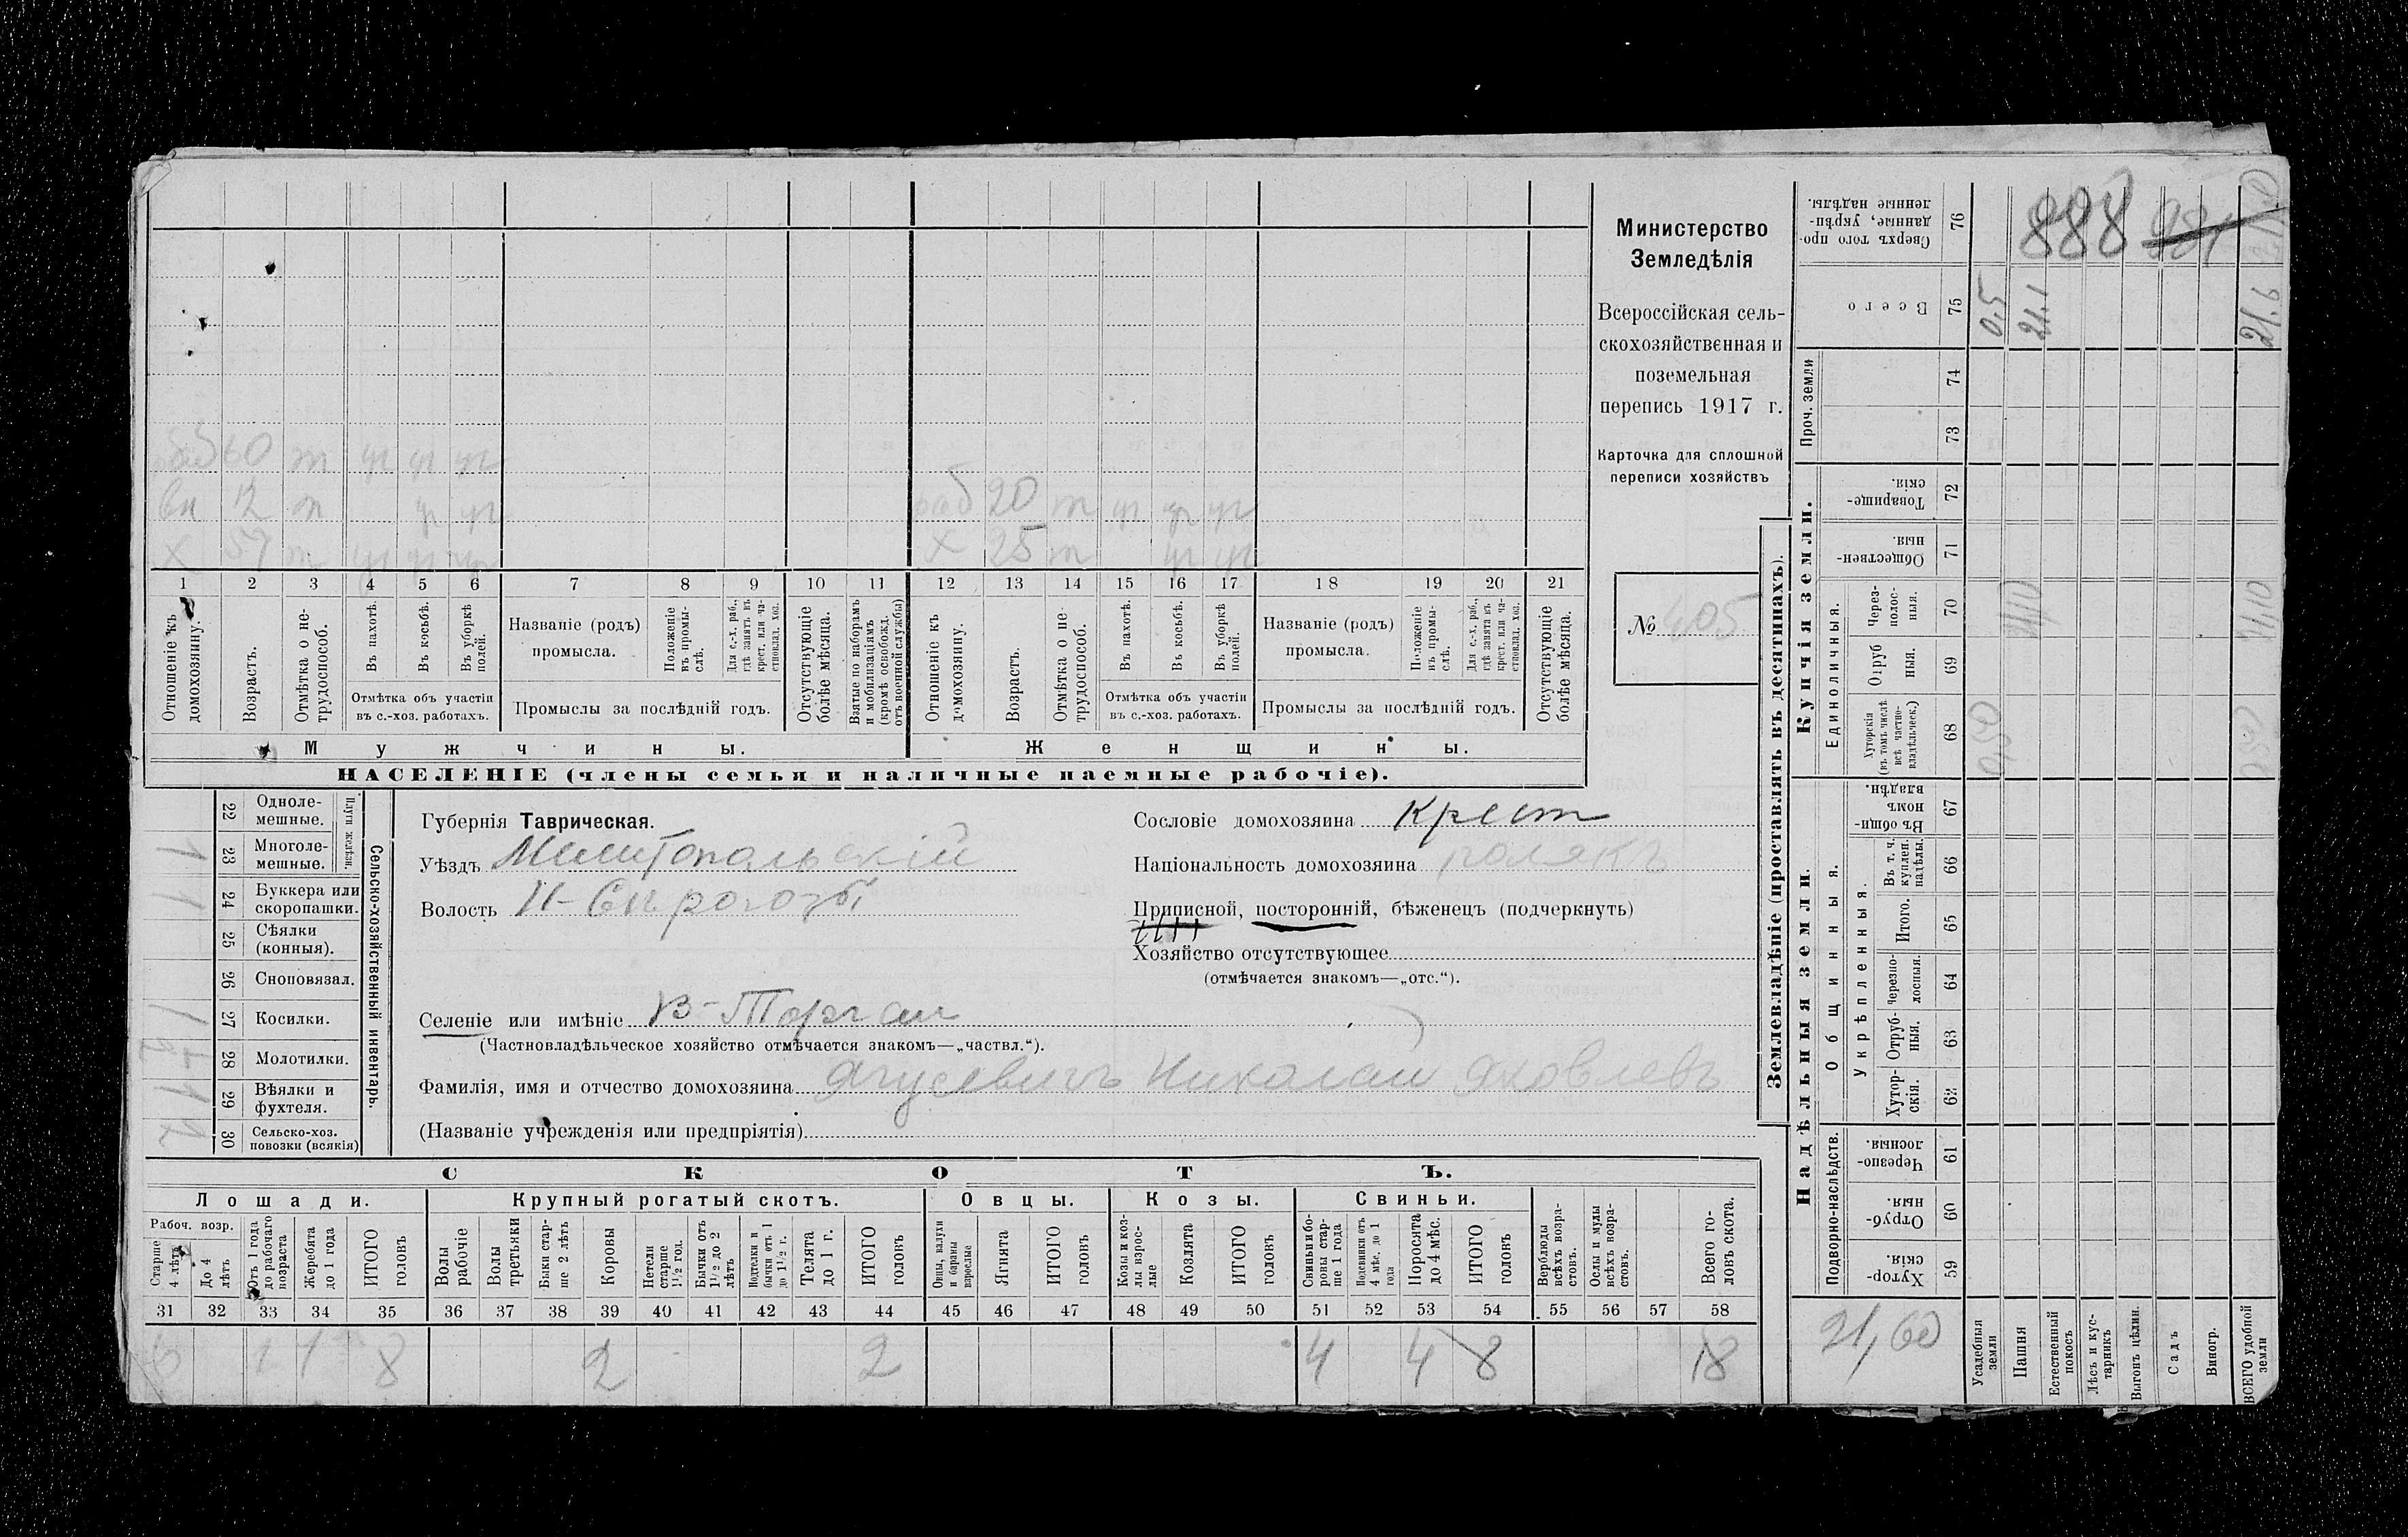 Министерство
Земледѣлія
Всероссійская сель-
скохозяйственная и
поземельная
перепись 1917 г.
Карточка для сплошной
переписи хозяйствъ
№ 405
60 т
вн 12 т
х 57 т
раб 20 т
х 25 т
1 2 3 4 5 6 7 8 9 10 11 12 13 14 15 16 17 18 19 20 21
Отношеніе къ домохозяину.
Возрастъ.
Отмѣтка о не-трудоспособ.
Въ пахотѣ.
Въ косьбѣ.
Въ уборкѣ полей.
Отмѣтка объ участіи
въ с.-хоз. работахъ.
Названіе (родъ)
промысла.
Положеніе въ промы-слѣ.
Для с.-х. раб., гдѣ занятъ въ крест. или ча-стновлад. хоз.
Промыслы за послѣдній годъ.
Отсутствующіе болѣе мѣсяца.
Взятые по наборамъ и мобилизаціямъ (кромѣ освобожд. отъ военной службы)
Отношеніе къ домохозяину.
Возрастъ.
Отмѣтка о не-трудоспособ.
Въ пахотѣ.
Въ косьбѣ.
Въ уборкѣ полей.
Отмѣтка объ участіи
въ с.-хоз. работахъ.
Названіе (родъ)
промысла.
Положеніе въ промы-слѣ.
Для с.-х. раб., гдѣ занята въ крест. или ча-стновлад. хоз.
Промыслы за послѣдній годъ.
Отсутствующіе болѣе мѣсяца.
Мужчины.
Женщины.
НАСЕЛЕНІЕ (члены семьи и наличные наемные рабочіе).
Сельско-хозяйственный инвентарь.
Плуги желѣзн.
22 Одноле-мешные.
23 Многоле-мешные. 1
24 Буккера или скоропашки. 1
25 Сѣялки (конныя).
26 Сноповязал.
27 Косилки. 1
28 Молотилки.
29 Вѣялки и фухтеля. 1
30 Сельско-хоз. повозки (всякія)
Губернія Таврическая.
Уѣздъ Мелитопольскій
Волость Н-Сирогозы
Селеніе или имѣніе В-Торгаи
(Частновладѣльческое хозяйство отмѣчается знакомъ—„частвл.“).
Фамилія, имя и отчество домохозяина Ягусевичъ Николай Яковлевъ
(Названіе учрежденія или предпріятія)
Сословіе домохозяина Крест
Національность домохозяина полякъ
Приписной, посторонній, бѣженецъ (подчеркнуть)
Хозяйство отсутствующее
(отмѣчается знакомъ—„отс.“).
СКОТЪ.
Лошади.
Крупный рогатый скотъ.
Овцы.
Козы.
Свиньи.
Рабоч. возр.
Старше 4 лѣтъ
До 4 лѣтъ
Отъ 1 года до рабочаго возраста
Жеребята до 1 года
ИТОГО головъ
Волы рабочіе
Волы третьяки
Быки стар-ше 2 лѣтъ
Коровы
Нетели старше 1½ год.
Бычки отъ 1½ до 2 лѣтъ
Подтелки и бычки отъ 1 до 1½ г.
Телята до 1 г.
ИТОГО головъ
Овцы, валухи и бараны взрослые
Ягнята
ИТОГО головъ
Козы и коз-лы взрос-лые
Козлята
ИТОГО головъ
Свиньи и бо-ровы стар-ше 1 года
Подсвинки отъ 4 мѣс. до 1 года
Поросята до 4 мѣс.
ИТОГО головъ
Верблюды всѣхъ возра-стовъ.
Ослы и мулы всѣхъ возра-стовъ.
Всего го-ловъ скота.
31 32 33 34 35 36 37 38 39 40 41 42 43 44 45 46 47 48 49 50 51 52 53 54 55 56 57 58
6 1 1 8 2 2 4 4 8 18
Землевладѣніе (проставлять въ десятинахъ).
Купчія земли.
Надѣльныя земли.
Сверхъ того про-данные, укрѣп-ленные надѣлы. 76
Всего 75
Проч. земли 74 73
Товарище-скія. 72
Обществен-ныя. 71
Единоличныя.
Через-полос-ныя. 70
Отруб ныя. 69
Хуторскія (въ томъ числѣ всѣ частно-владѣльческ.) 68
Общинныя.
Въ общи-номъ владѣн. 67
Укрѣпленныя.
Въ т. ч. куплен. надѣлы. 66
Итого. 65
Черезпо-лосныя. 64
Отруб-ныя. 63
Хутор-скія. 62
Подворно-наслѣдств.
Черезпо-лосныя. 61
Отруб-ныя. 60
Хутор-скія. 59
888
0,5
21,1
21,6
21,60
Усадебныя земли
Пашня
Естественный покосъ
Лѣсъ и кус-тарникъ
Выгонъ цѣлин.
Садъ
Виногр.
ВСЕГО удобной земли